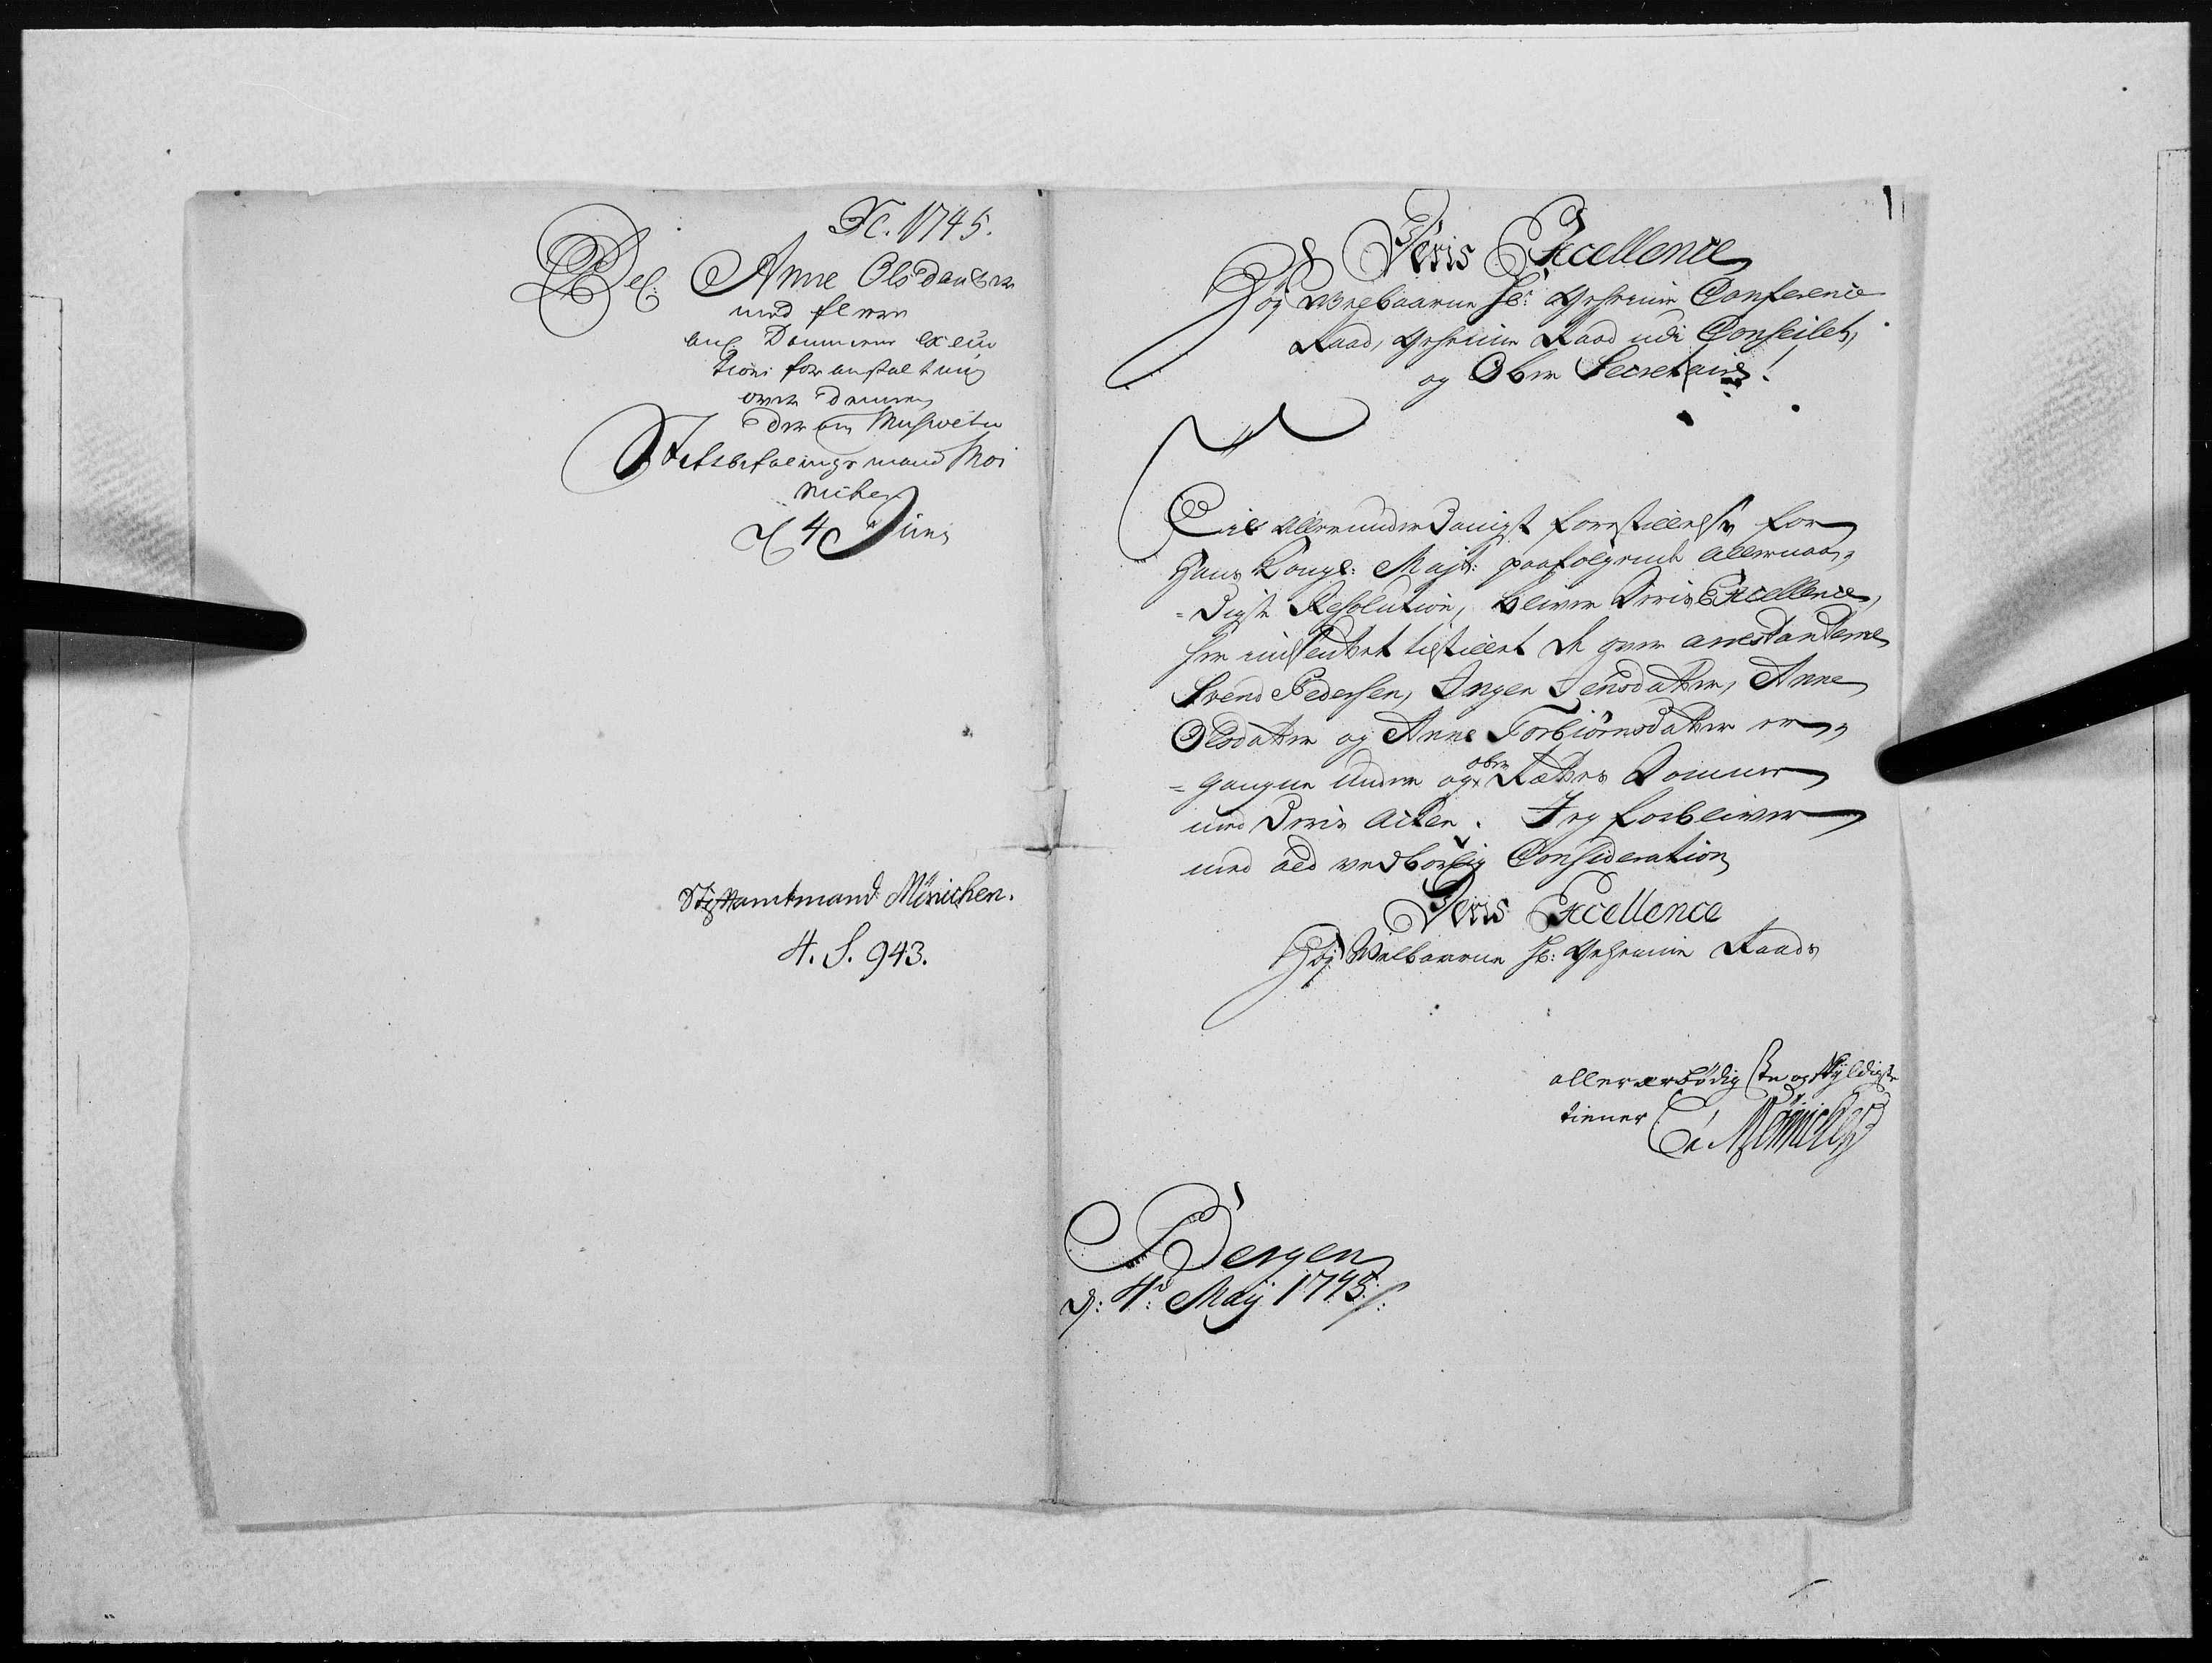 Xc. 1745.
Bef: Anne Olsdaatter
med fleere
ang Dommens execu
tions foranstaltning
over dennem
Der om Missive til
Stiftsbefalingsmand Mö
nichen
d 4 Juni
Stiftamtmand Münichen.
4. S. 943.
Deris Excellence
Höy Velbaarne Hr: Geheime Conference
Raad, Geheime Raad udi Conseilet,
og Ober Secretaire!
Til allerunderdanigst forestillelse for
Hans Kongl: Majts: paafølgende allernaa-
-digste Resolution, bliver Deris Excellence,
her indsendet tilstillet de over arrestanterne
Svend Pedersen, Inger Jensdatter, Anne
Olsdatter og Anne Torbiörnsdatter er-
-gangne Under og ober Rætters Domme
med Deris Acter. Jeg forbliver
med all vedbörlig Consideration
Deris Excellence
Höy Velbaarne Hr: Geheime Raads
allerærbödigste og skyldigste
tiener C Mönichen
Bergen
d: 4de Maij 1745.